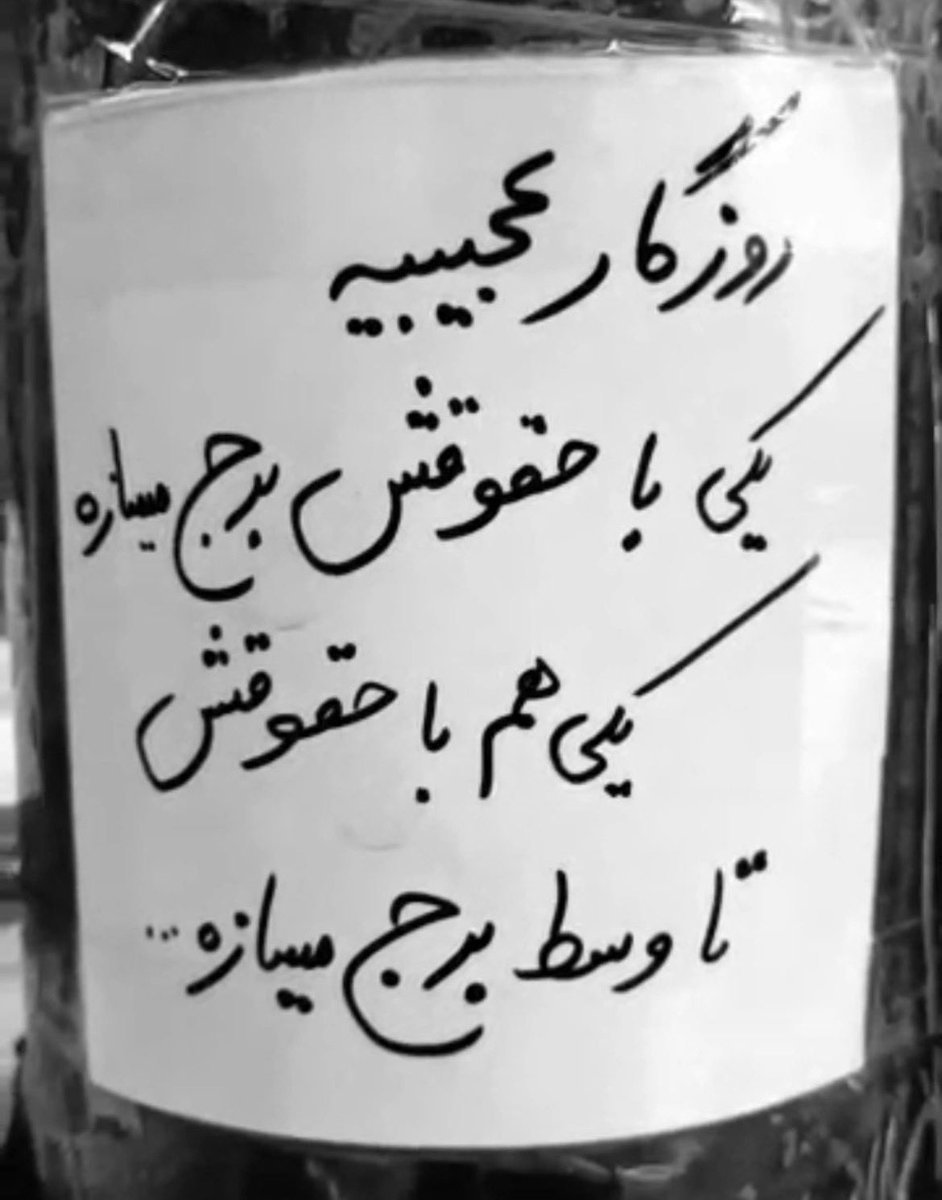 روزگار عجیبیه
یکی با حقوقش برج میسازه
یکی هم با حقوقش
تا وسط برج میسازه...